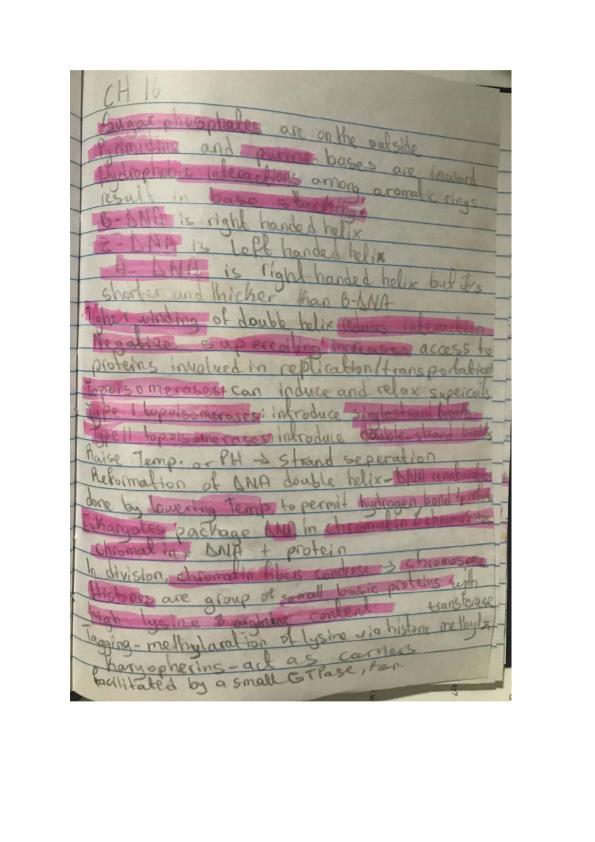 CH 16
Sugar phosphates are on the outside
Pyrimidine and purine bases are inward
Hydrophobic interactions among aromatic rings
result in base stacking
B-DNA is right handed helix
Z-DNA is Left handed helix
A-DNA is right handed helix but it's
shorter and thicker than B-DNA
Tigher winding of double helix reduces interaction
Negative supercoiling increases access to
proteins involved in replication/transportation
Topoisomerases can induce and relax supercoils
Type I topoisomerases: introduce single strand breaks
Type II topoisomerases introduce double-strand breaks
Raise Temp. or PH → strand seperation
Reformation of DNA double helix - DNA renaturation
done by lowering Temp to permit hydrogen bond to
Eukaryotes package DNA in chromatin & chromosome
Chromatin, DNA + protein
In division, chromatin fibers condense → chromosome
Histones are group of small basic proteins with
high lysine & arginine content
transferase
Tagging - methylaration of lysine via histone methyl
karyopherins - act as carriers
facilitated by a small GTPase, ran.